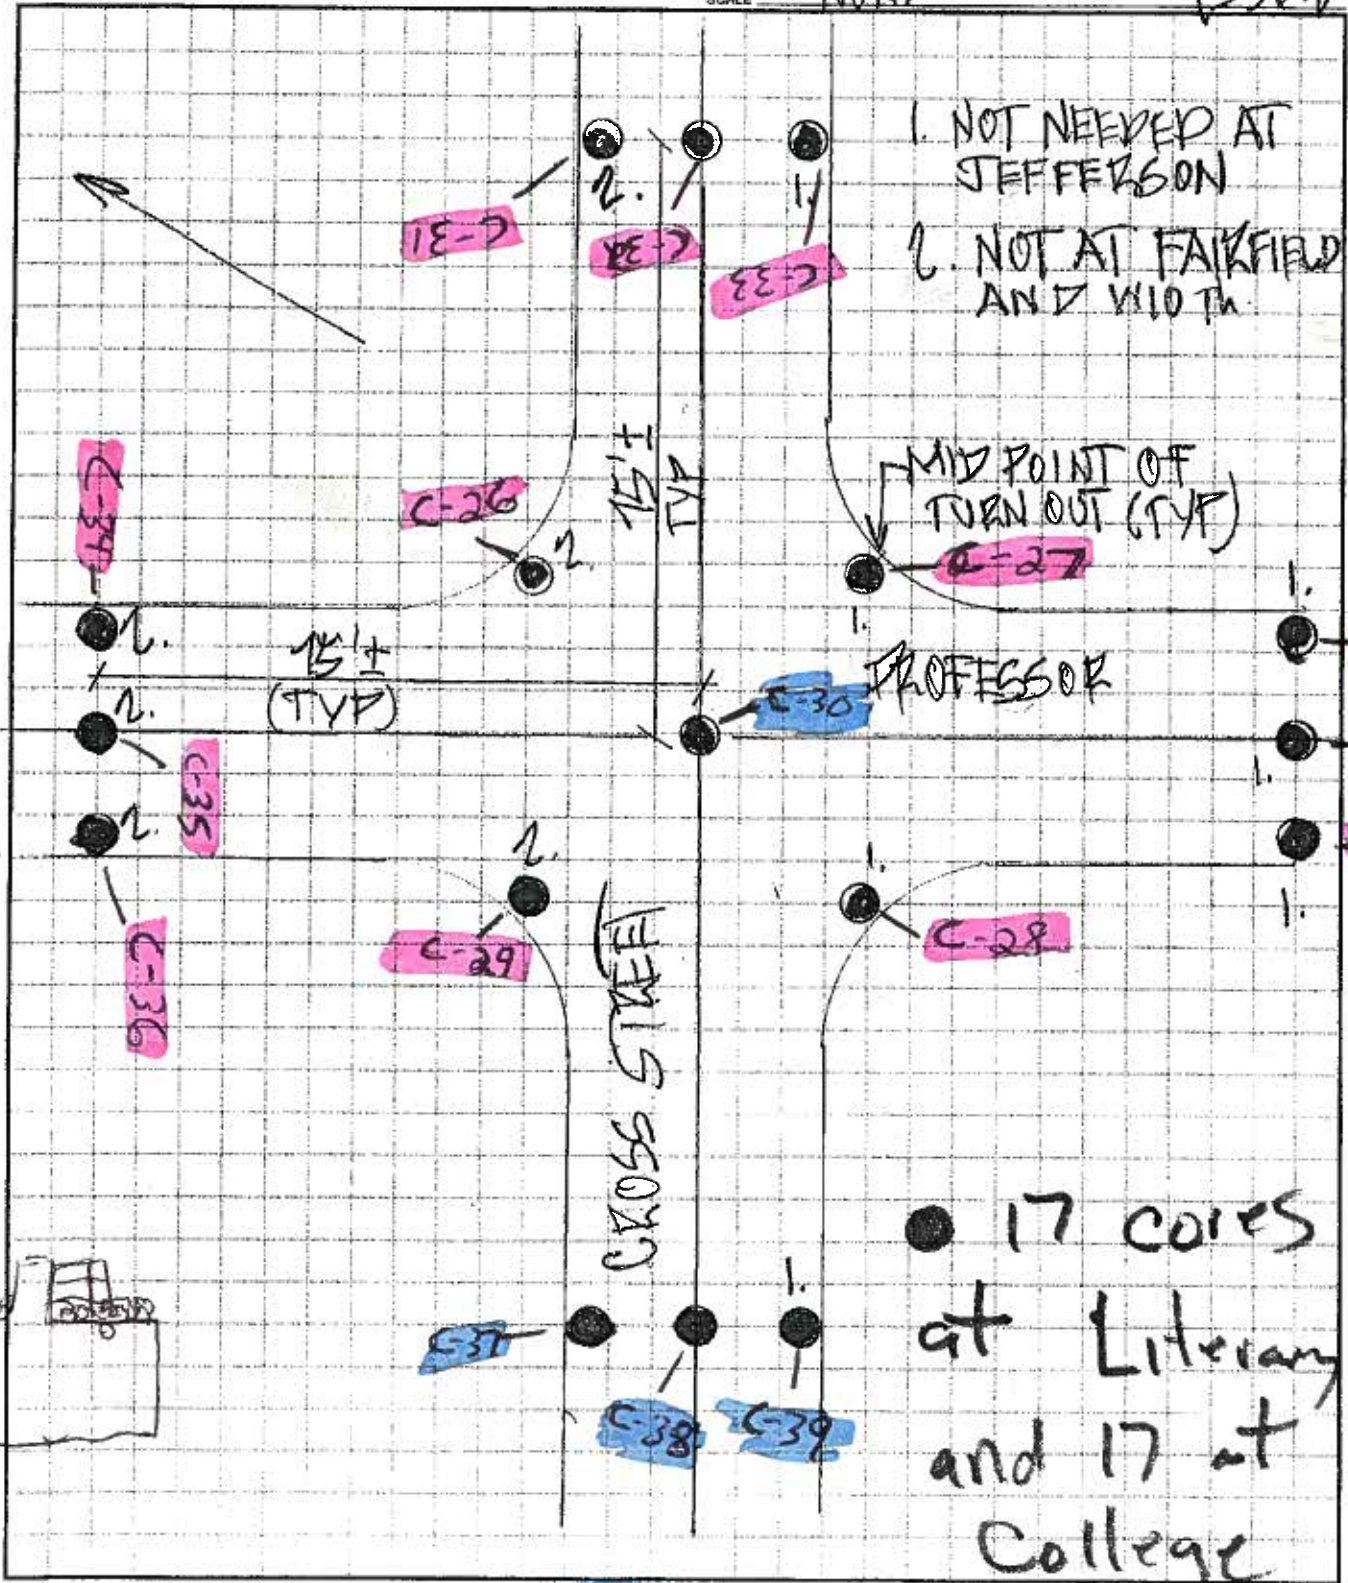 SCALE NONE
1. NOT NEEDED AT
JEFFERSON
2. NOT AT FAIRFIELD
AND
2.
1.
C-31
C-32
C-33
C-34
C-26
2.
75'±
TYP
MID POINT OF
TURN OUT (TYP)
C-27
1.
1.
2.
75'±
(TYP)
PROFESSOR
C-30
2.
1.
C-35
2.
2.
1.
1.
C-29
C-28
C-36
CROSS STREET
17 cores
at Literary
and 17 at
College
1.
C-37
C-38
C-39